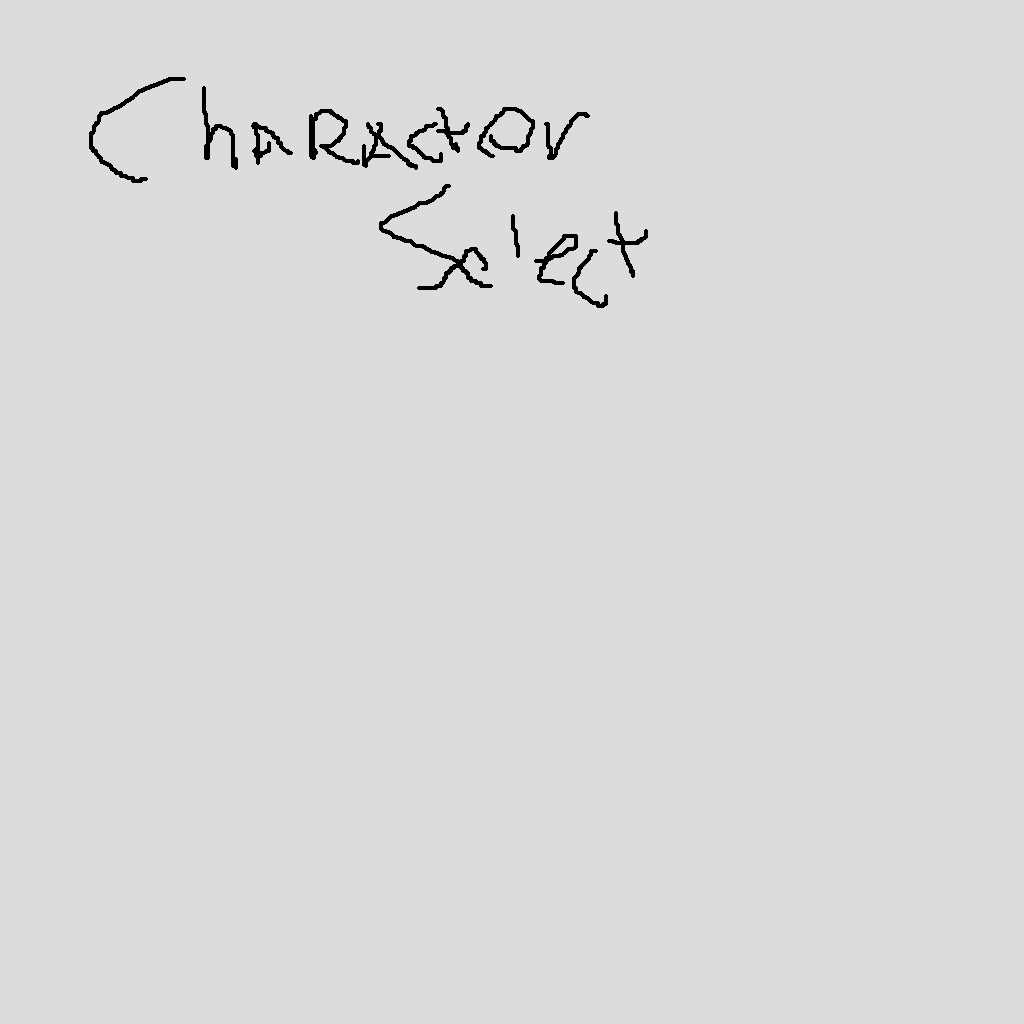 Character
Select